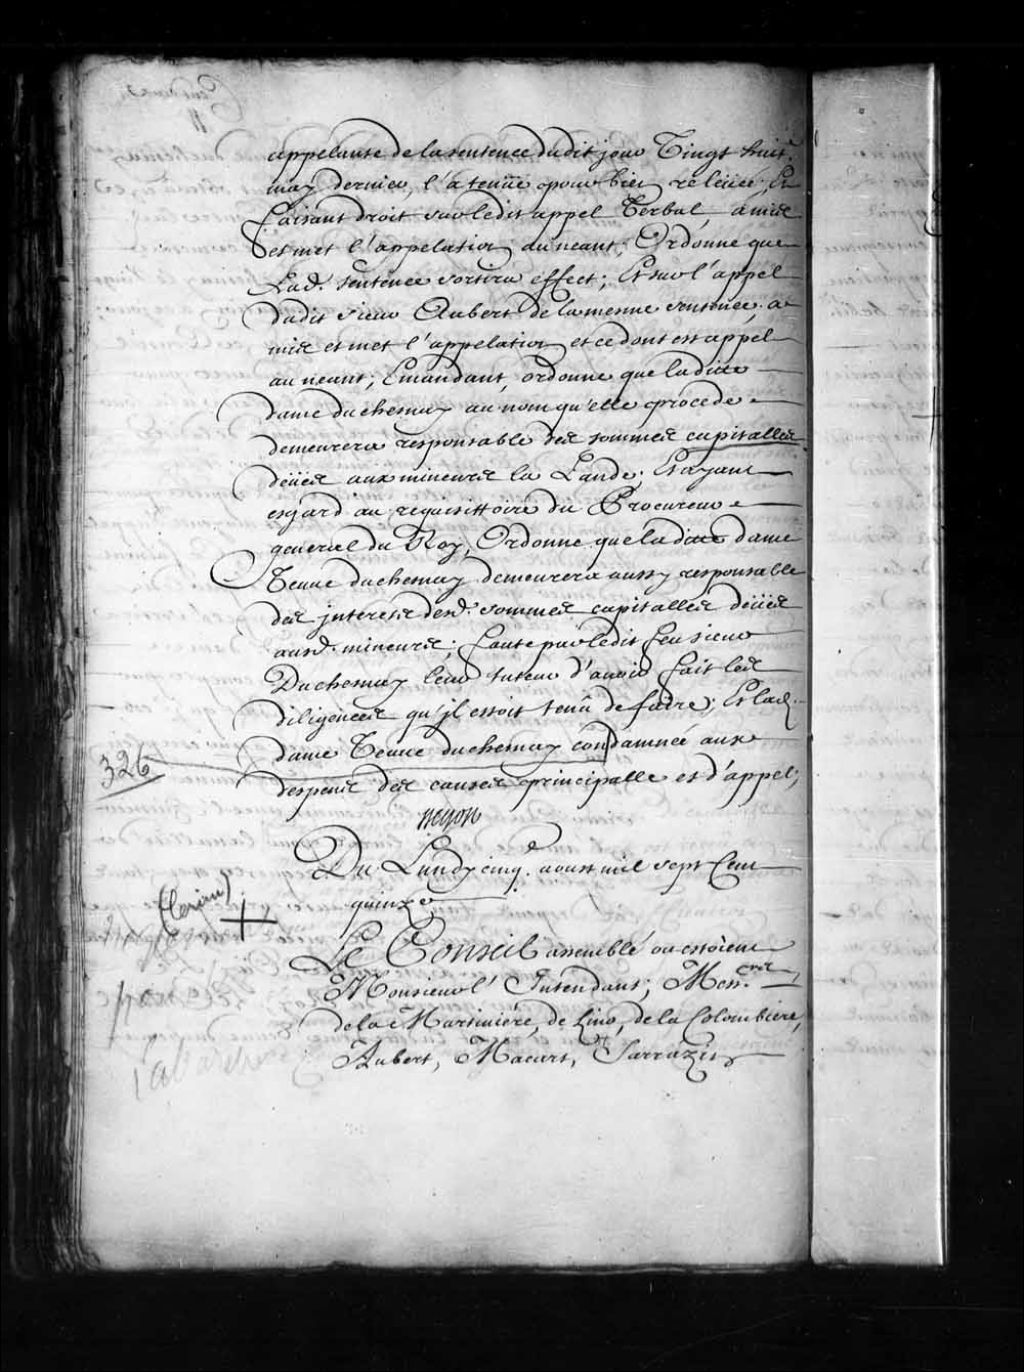 appelante de la sentence dudit jour Vingt huit.
may dernier, l'a tenüe pour bien relevée; Et
faisant droit sur ledit appel Verbal, a mis
et met l'appelation au neant; Ordonne que
Lad. sentence sortira effect; Et sur l'appel
dudit sieur Aubert de la mesme sentence, a
mis et met l'appelation et ce dont est appel
au neant; Emandant, ordonne que ladite
dame duchesnay au nom qu'elle procede
demeurera responsable des sommes capitalles
deües aux mineurs la Lande; Et ayant
esgard au requisittoire du Procureur
general du Roy, Ordonne que ladite dame
Veuve duchesnay demeurera aussy responsable
des jnterests desd. sommes capitalles deües
ausd. mineurs; faute par ledit feu sieur
Duchesnay leur tuteur d'avoir fait les
diligences qu'jl estoit tenû de faire; Et lad.
dame Veuve duchesnay condamnée aux
326
despens des causes principalle et d'appel;
Begon
Du Lundy cinq.e aoust mil sept Cent
quinze
Le Conseil assemblé ou estoient
Monsieur l'Intendant; Mess.rs
de la Martiniere, de Lino, de la Colombiere,
Aubert, Macart, Sarrazin